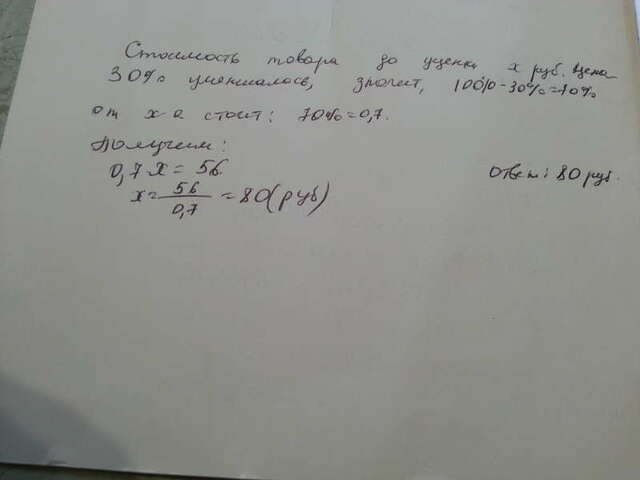 Стоимость товара до уценки x руб. Цена
30% уменшалось, значит, 100% - 30% = 70%
от x а стоит: 70% = 0,7.
Получим:
0,7 x = 56.
x = 56/0,7 = 80 (руб)
Ответ: 80 руб.